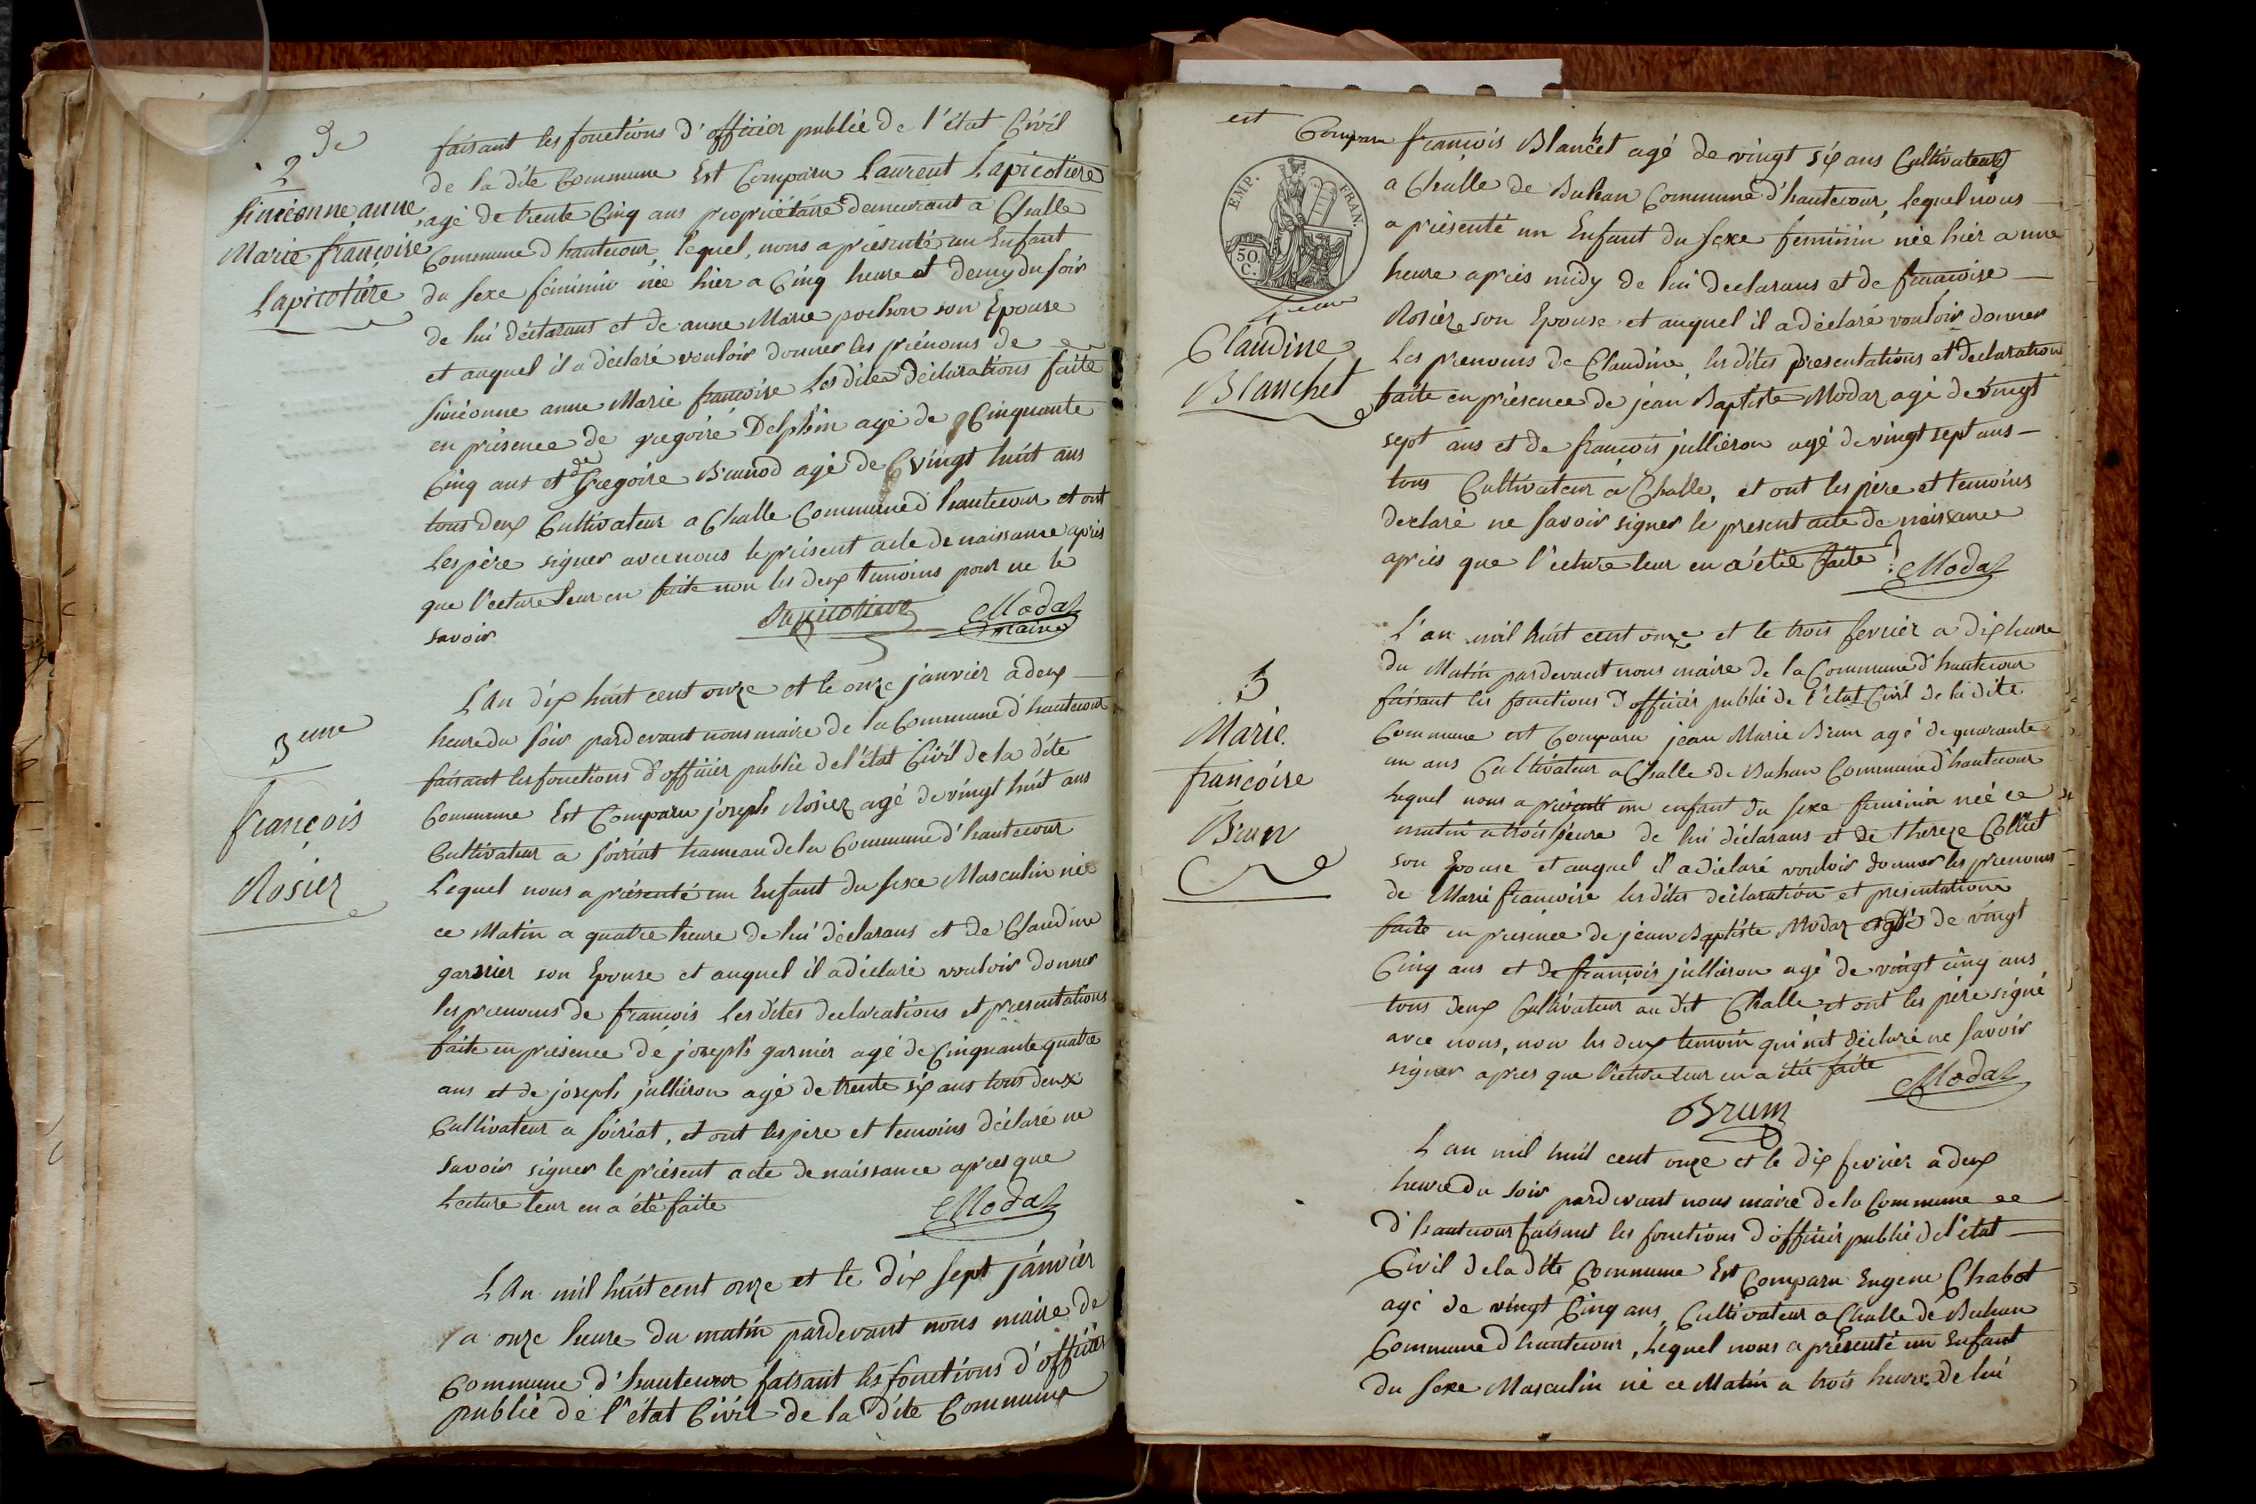 2de
Siméonne anne
Marie françoise
Lapicotière
faisant les fonctions d'officier publié de l'état Civil
de la dite Commune Est Comparu Laurent Lapicotière
agé de trente Cinq ans propriétaire demeurant a Challe
Commune d'hautecour, lequel, nous a présenté un Enfant
du sexe féminin née hier a Cinq heure et demy du soir
de lui déclarans et de anne Marie pochon son Epouse
et auquel il a déclaré vouloir donner les prénoms de
siméonne anne Marie françoise Les dites déclarations faite
en présence de gregoire Delphin agé de Cinquante
Cinq ans et de Gregoire Brunod agé de vingt huit ans
tous deux Cultivateur a Challe Commune d'hautecour et ont
Les père signer avec nous le présent acte de naissance après
que l'ecture leur en faite non les deux temoins pour ne le
savoir
Lapicotiere Modaz
maire
3eme
françois
Rosier
L'An dix huit cent onze et le onze janvier a deux
heure du soir pardevant nous maire de la Commune d'hautecour
faisant les fonctions d'officier publié de l'état Civil de la dite
Commune Est Comparu joseph Rosier agé de vingt huit ans
Cultivateur a soiriat hameau de la Commune d'hautecour
Lequel nous a présenté un Enfant du sexe Masculin né
ce Matin a quatre heure de lui déclarans et de Claudine
garnier son Epouse et auquel il a déclaré vouloir donner
les prenoms de françois Les dites declarations et présentations
faite en présence de joseph garnier agé de Cinquante quatre
ans et de joseph jullieron agé de trente six ans tous deux
Cultivateur a soiriat, et ont les père et temoins déclaré ne
savoir signer le présent acte de naissance apres que
Lecture leur en a été faite
Modaz
L'An mil huit cent onze et le dix sept janvier
a onze heure du matin pardevant nous maire de
Commune d'hautecour faisant les fonctions d'officier
publié de l'état Civil de la dite Commune
est Comparu françois Blanchet agé de vingt six ans Cultivateur
EMP. FRAN.
50 C.
Claudine
Blanchet
a Challe de Buhan Commune d'hautecour, Lequel nous
a présenté un Enfant du sexe feminin née hier a une
heure après midy de lui declarans et de francoise
Rosier son Epouse et auquel il a déclaré vouloir donner
Les prenoms de Claudine, les dites presentations et declaration
faite en présence de jean Baptiste Modaz agé de vingt
sept ans et de françois jullieron agé de vingt sept ans
tous Cultivateur a Challe, et ont les père et temoins
declaré ne savoir signer le present acte de naissance
après que l'ecture leur en a été faite Modaz
5
Marie
françoise
Brun
L'an mil huit cent onze et le trois fevrier a dix heure
du Matin pardevant nous maire de la Commune d'hautecour
faisant les fonctions d'officier publié de l'état Civil de la dite
Commune est Comparu jean Marie Brun agé de quarante
un ans Cultivateur a Challe de Buhan Commune d'hautecour
Lequel nous a présenté un enfant du sexe feminin née ce
matin a trois heure de lui déclarans et de thereze Collet
son Epouse et auquel il a déclaré vouloir donner les prenoms
de Marie françoise les dites déclaration et presentation
faite en presence de jean Baptiste Modaz agé de vingt
Cinq ans et de françois jullieron agé de vingt cinq ans
tous deux Cultivateur au dit Challe, et ont les père signé
avec nous, non les deux temoin qui n'ont déclaré ne savoir
signer apres que l'ecture leur en a été faite
Modaz
Brun
L'an mil huit cent onze et le dix fevrier a deux
heure du soir pardevant nous maire de la Commune
d'hautecour faisant les fonctions d'officier publié de l'état
Civil de la dite Commune Est Comparu Eugene Chabot
agé de vingt Cinq ans, Cultivateur a Challe de Buhan
Commune d'hautecour, Lequel nous a présenté un Enfant
du sexe Masculin né ce Matin a trois heure de lui